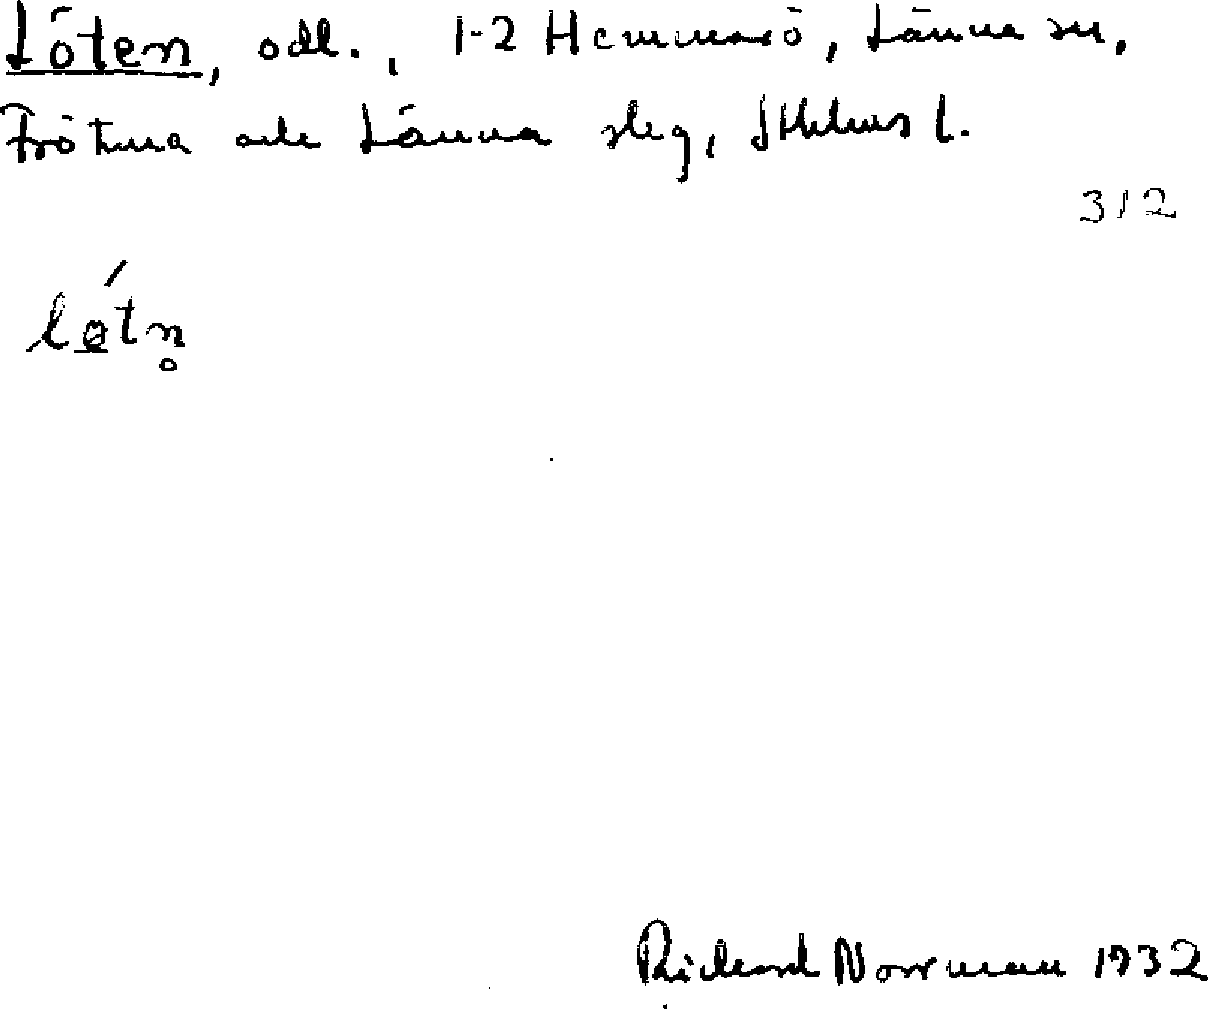 Löten, odl., 1-2 Hemmarö, Länna sn,
Frötuna och Länna slg, Sthlms l.
312
lǿ̱tn̥
Richard Norrman 1932